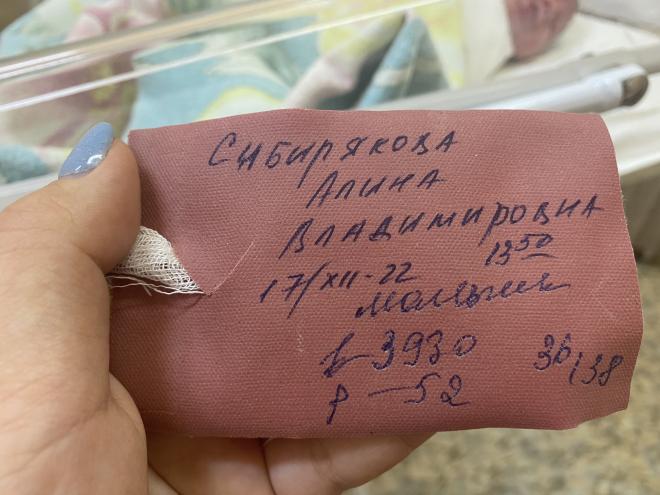 Сибирякова
Алина
Владимировна
17/XII-22 13 50
мальчик
в 3930 36/38
р - 52